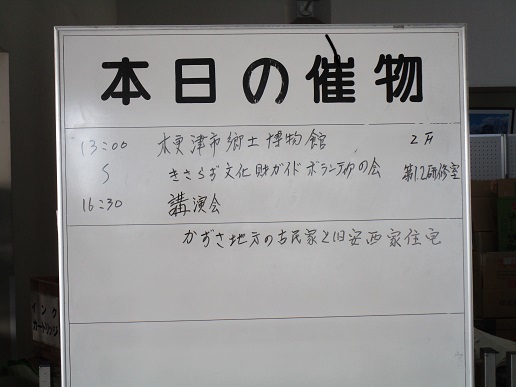 本日の催物
13:00 木更津市郷土博物館 2F
〜 きさらぎ文化財ガイドボランティアの会 第1.2研修室
16:30 講演会
かずさ地方の古民家と旧安西家住宅
インク
カートリッジ